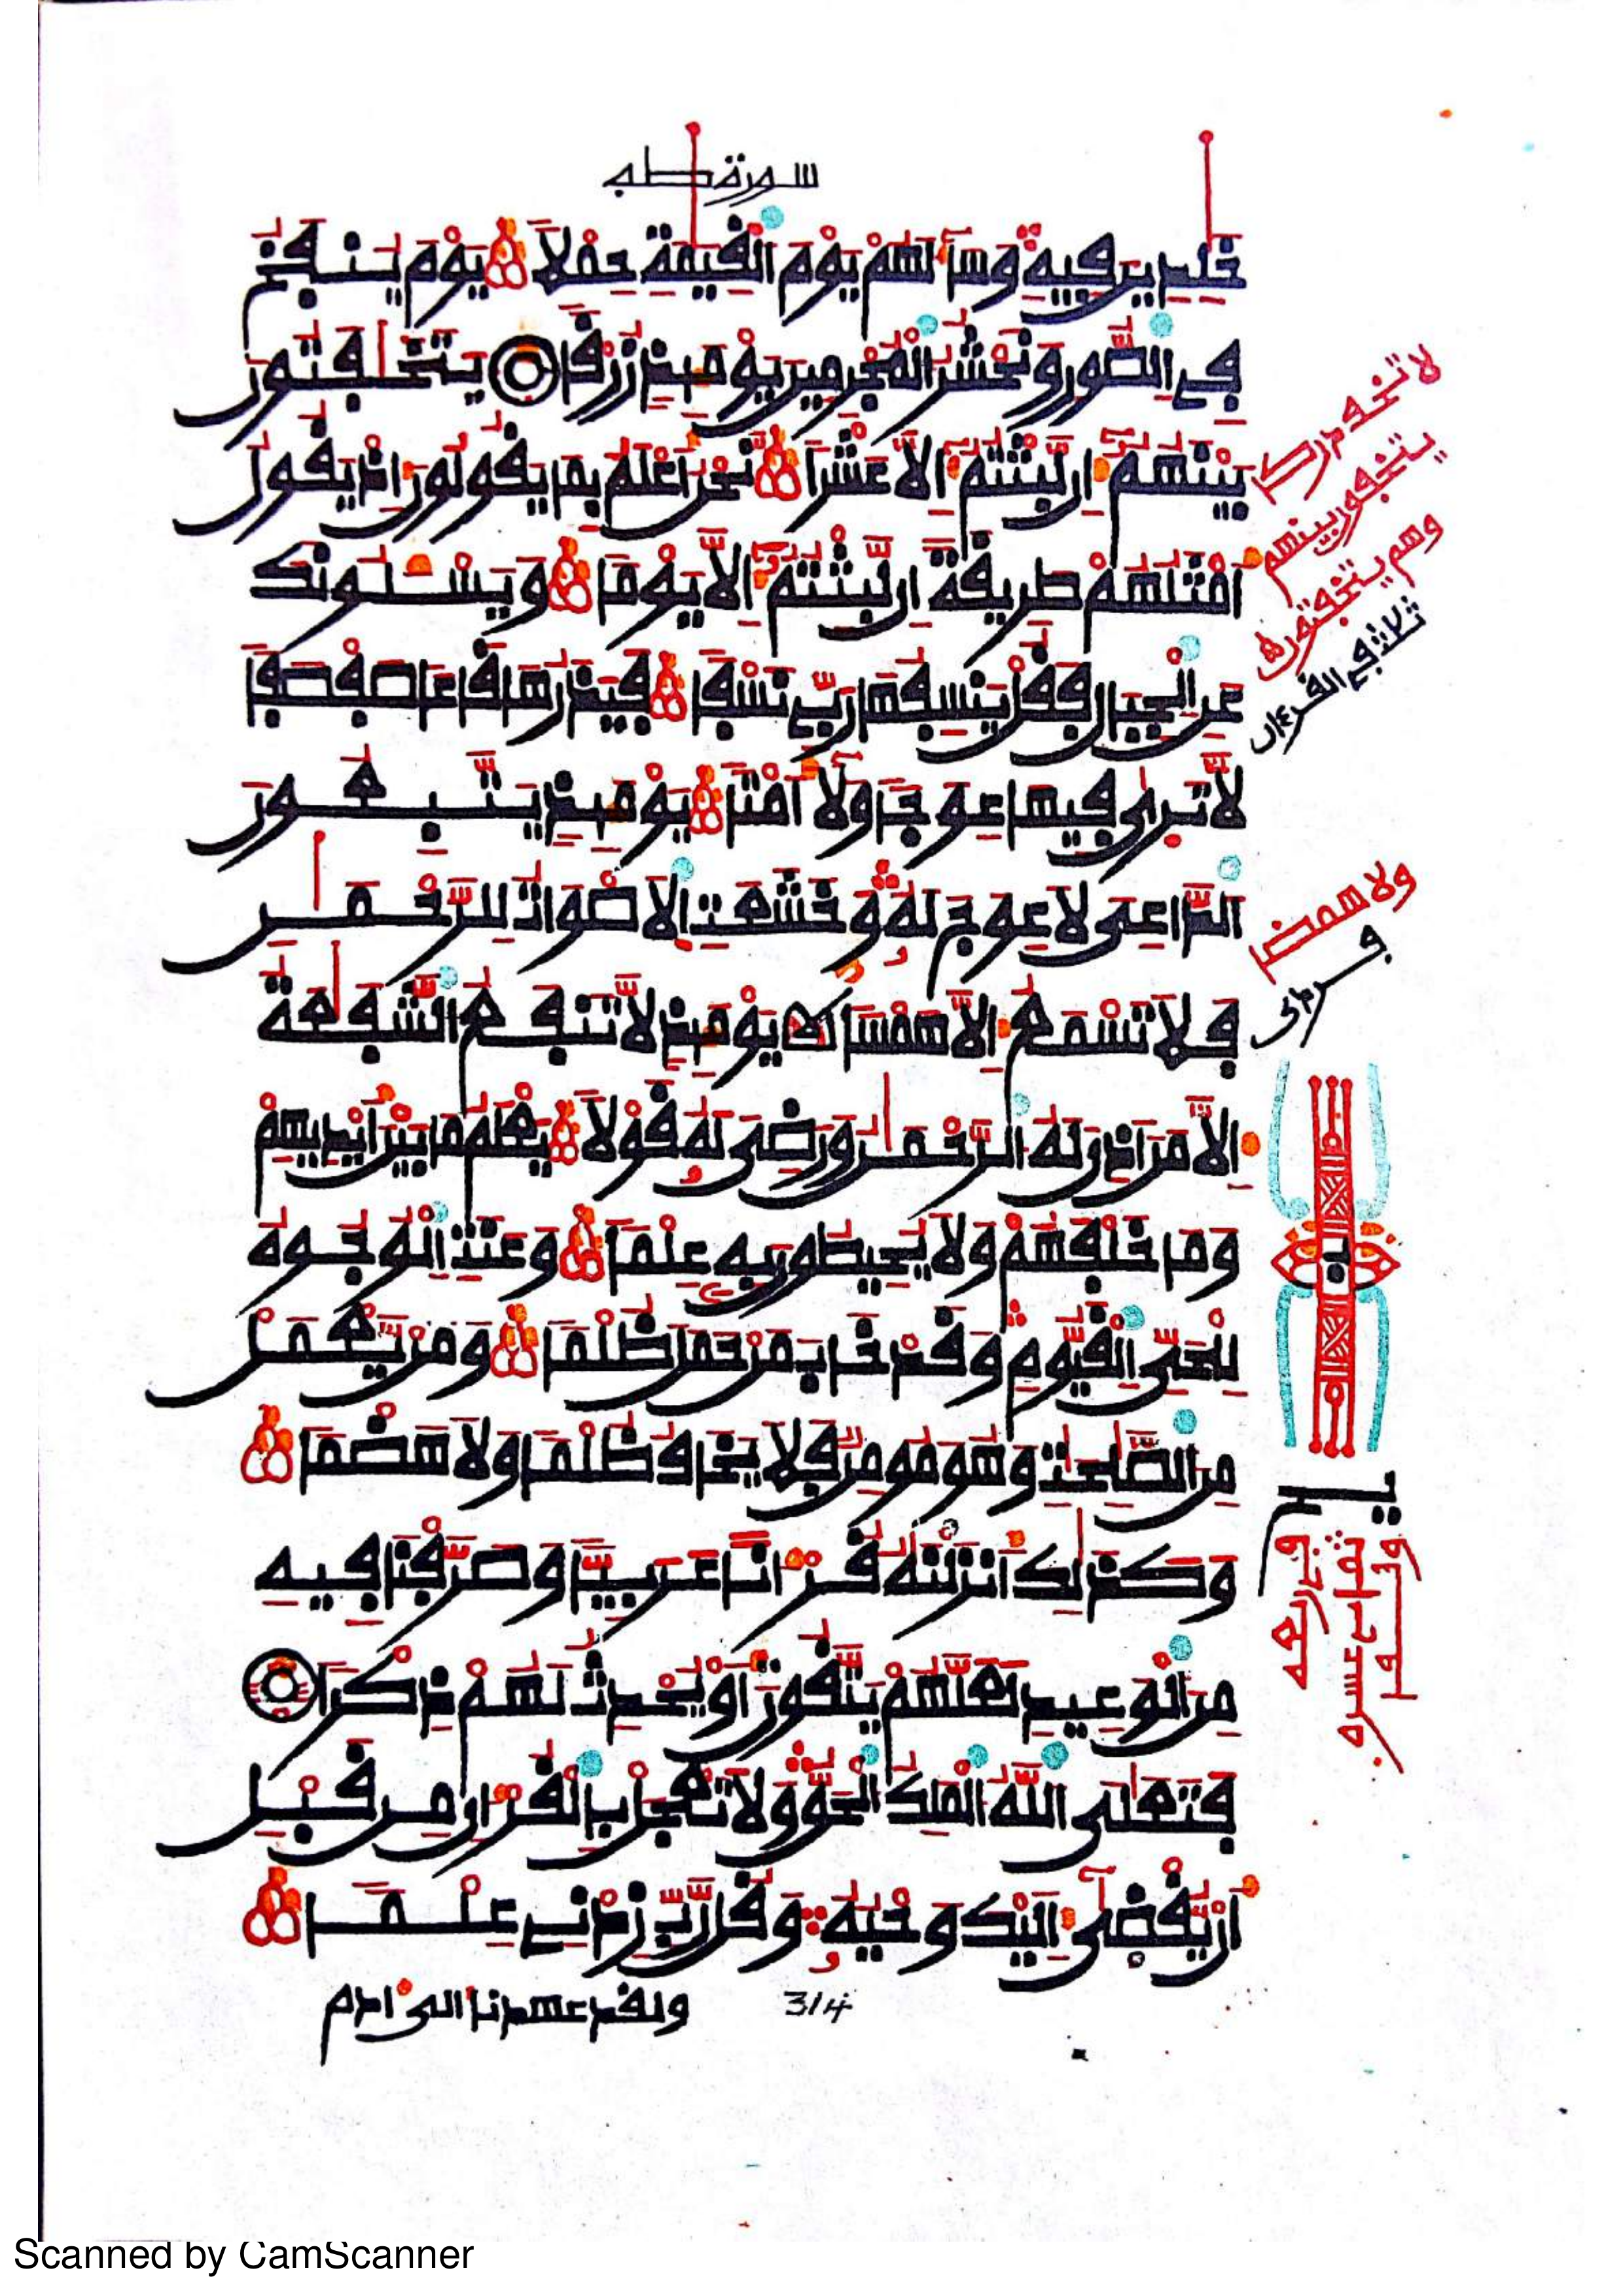 سورة طه
خلدين فيه وسا لهم يوم القيمة حملا يوم ينفخ
في الصور ونحشر المجرمين يومئذ زرقا يتخفتون
بينهم إن لبثتم إلا عشرا نحن أعلم بما يقولون إذ يقول
أمثلهم طريقة إن لبثتم إلا يوما ويسئلونك
عن الجبال فقل ينسفها ربي نسفا فيذرها قاعا صفصفا
لا ترى فيها عوجا ولا أمتا يومئذ يتبعون
الداعي لا عوج له وخشعت الأصوات للرحمن
فلا تسمع إلا همسا يومئذ لا تنفع الشفعة
إلا من أذن له الرحمن ورضي له قولا يعلم ما بين أيديهم
وما خلفهم ولا يحيطون به علما وعنت الوجوه
للحي القيوم وقد خاب من حمل ظلما ومن يعمل
من الصلحت وهو مومن فلا يخاف ظلما ولا هضما
وكذلك أنزلنه قرءانا عربيا وصرفنا فيه
من الوعيد لعلهم يتقون أو يحدث لهم ذكرا
فتعلى الله الملك الحق ولا تعجل بالقرءان من قبل
أن يقضى إليك وحيه وقل رب زدني علما
ولقد عهدنا إلى ءادم
314
لا تخف دركا
يتخفون بينهم
وهم يتخفتون
ثلاثة في القرءان
ولا هضما
Scanned by CamScanner